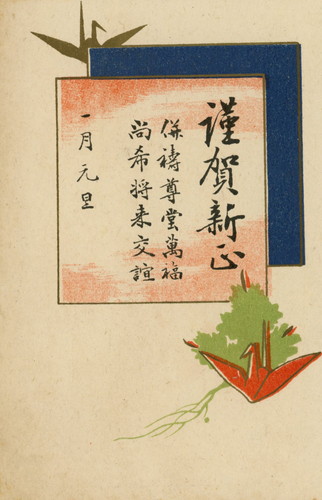 謹賀新正
併禱尊堂萬福
尚希将来交誼
一月元旦